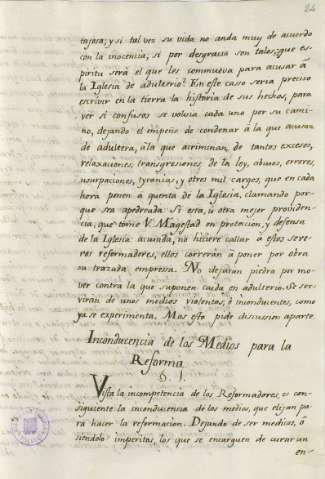 24
tajosa; y si tal vez su vida no anda muy de acuerdo
con la inocencia, si por desgracia son tales; que es-
piritu será el que les commueva para acusar á
la Iglesia de adulterio? En este caso seria preciso
escrivir en la tierra la historia de sus hechos, para
ver si confusos se volvia cada uno por su cami-
no, dejando el empeño de condenar á la que acusan
de adultera, á la que acriminan, de tantos excesos,
relaxaciones, transgresiones de la ley, abusos, errores,
usurpaciones, tyranias, y otros mil cargos, que en cada
hora ponen á quenta de la Iglesia, clamando por-
que sea apedreada. Si esta, ú otra mejor providen-
cia, que tome V. Magestad en proteccion, y defensa
de la Iglesia acusada, no hiciere callar á estos seve-
ros reformadores, ellos correrán á poner por obra
su trazada empresa. No dejarán piedra por mo-
ver contra la que suponen caida en adulterio. Se ser-
virán de unos medios violentos, é inconducentes, como
ya se experimenta. Mas esto pide discussion aparte.
Inconducencia de los Medios para la
Reforma
§. I.
Vista la incompetencia de los Reformadores, es con-
siguiente la inconducencia de los medios, que elijan pa-
ra hacer la reformacion. Dejando de ser medicos, ó
siendolo imperitos, los que se encarguen de curar un
en-